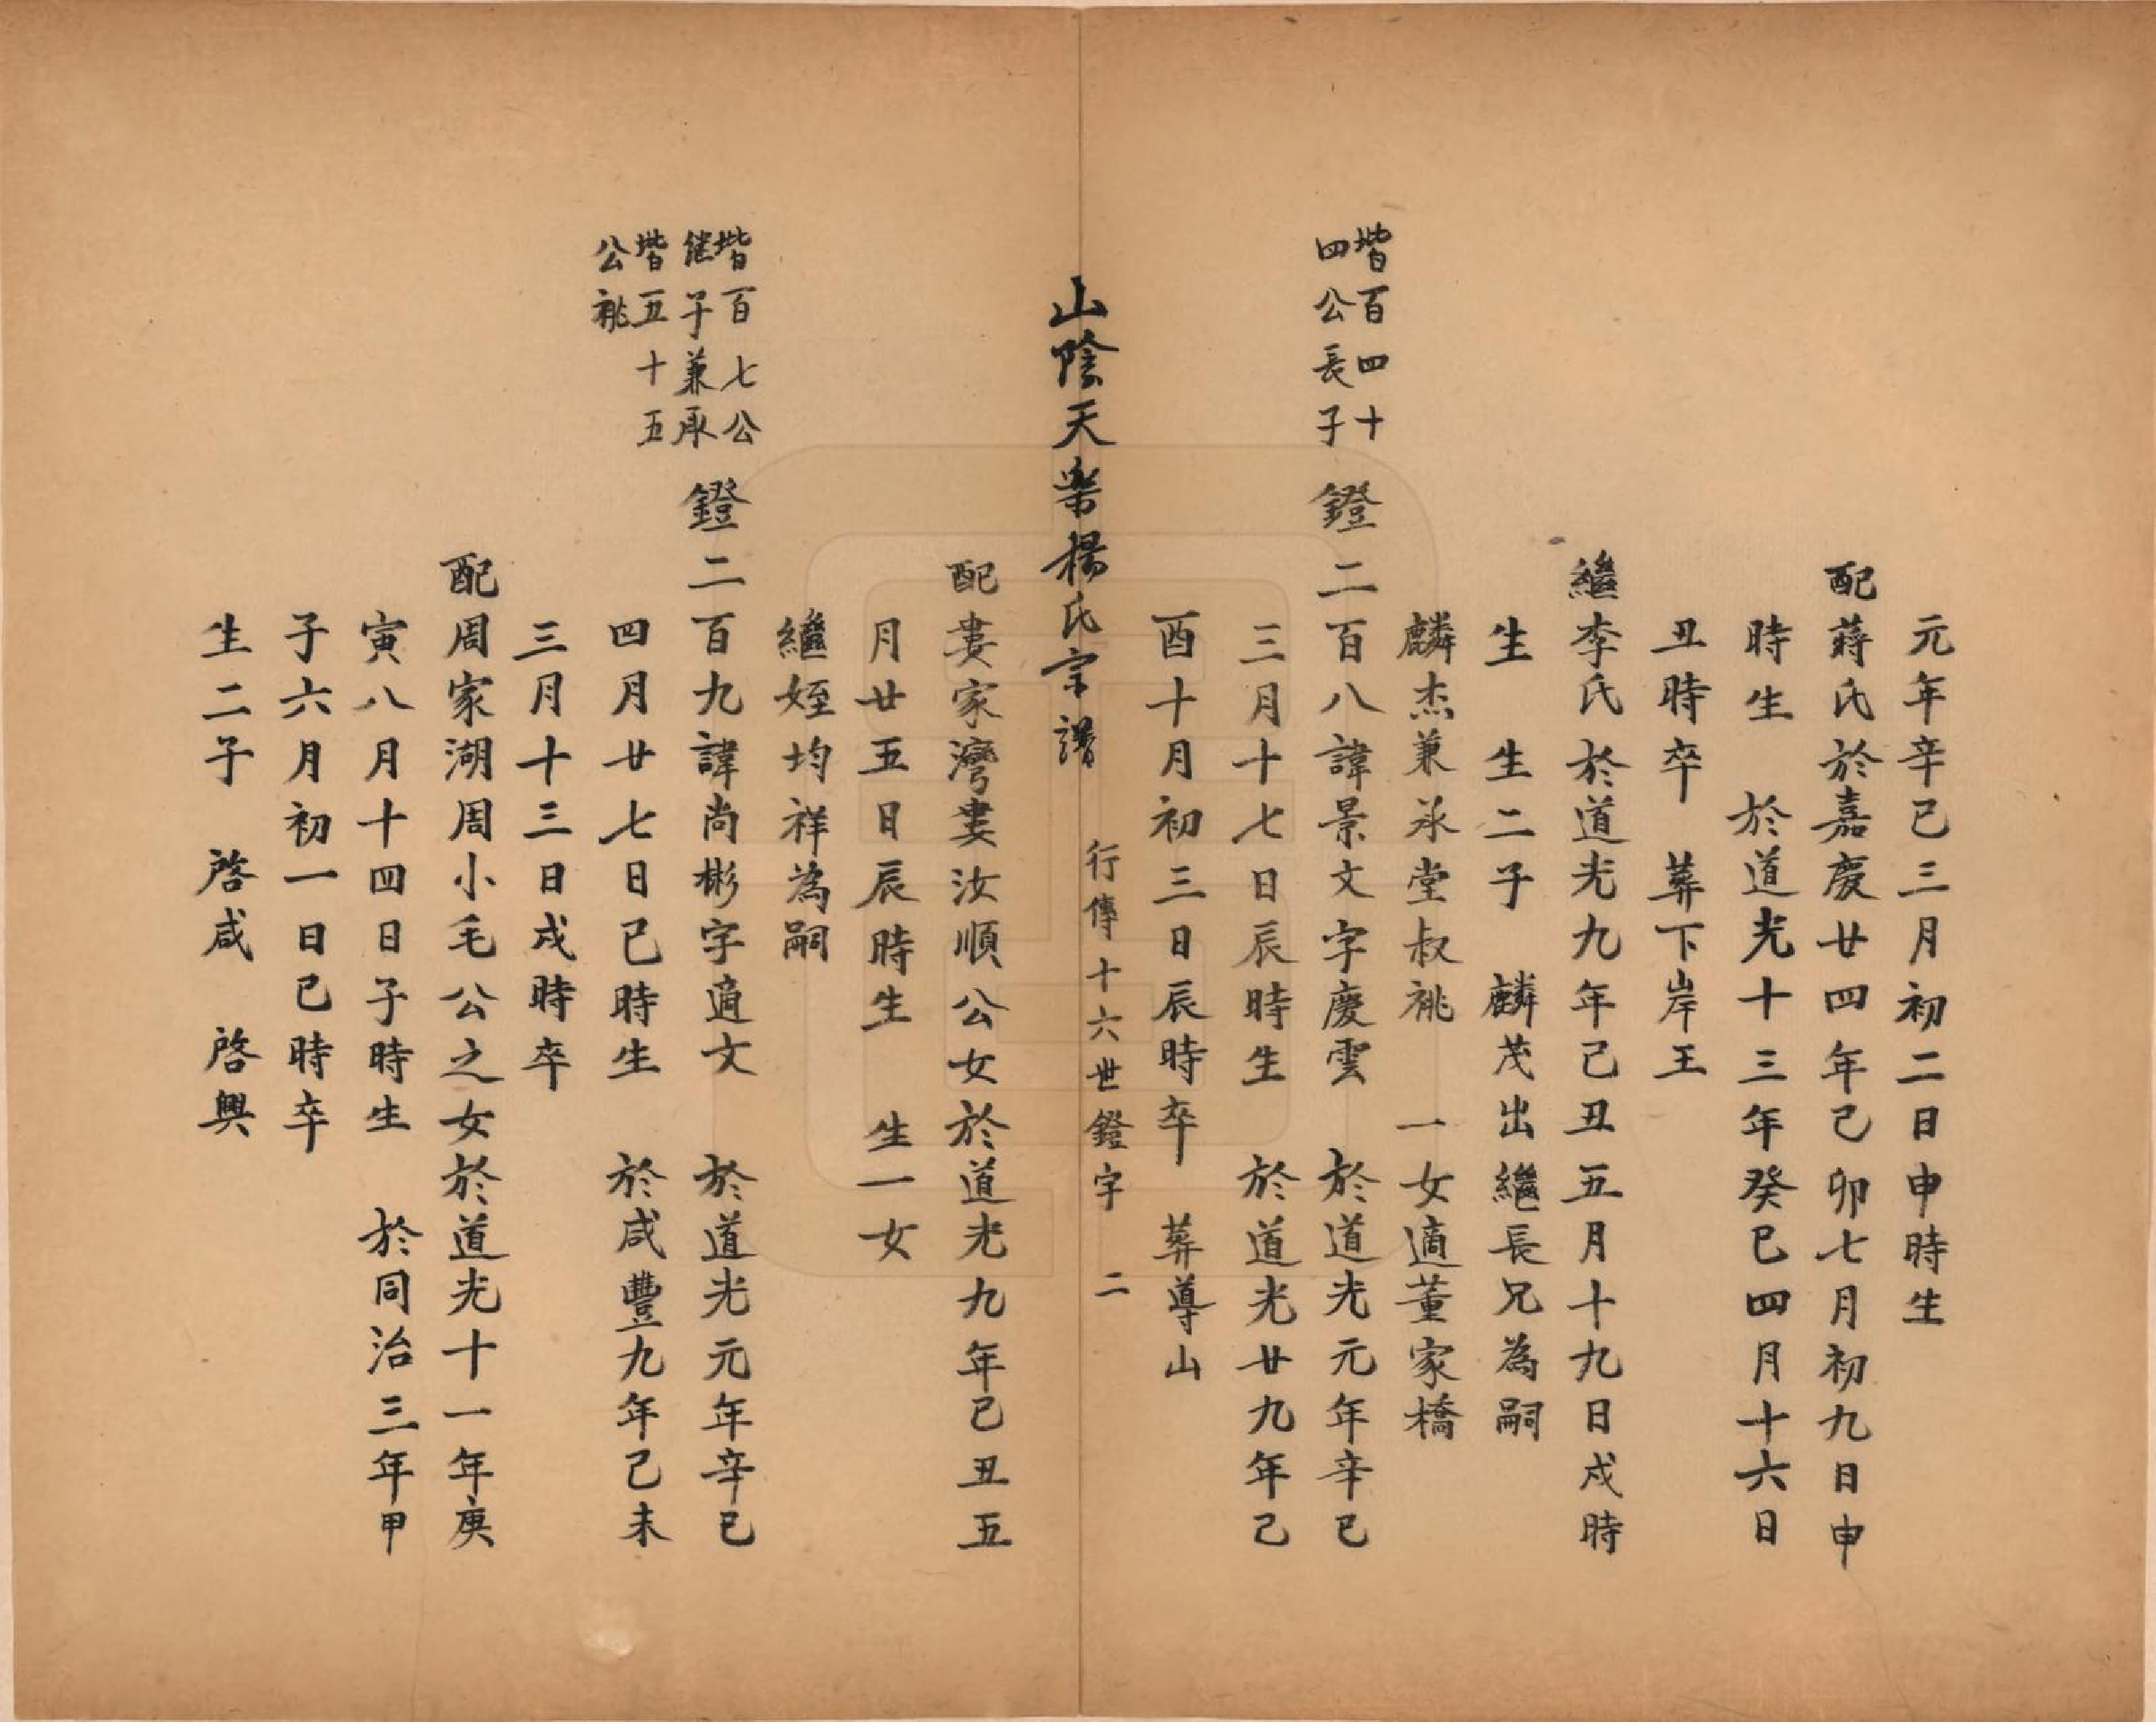 元年辛巳三月初二日申時生
配蔣氏於嘉慶廿四年己卯七月初九日申
時生 於道光十三年癸巳四月十六日
丑時卒 葬下岸王
繼李氏於道光九年己丑五月十九日戌時
生 生二子 麟茂出繼長兄為嗣
麟杰兼承堂叔祧 一女適董家橋
堦百四十
四公長子
鐙二百八諱景文字慶雲 於道光元年辛巳
三月十七日辰時生 於道光廿九年己
酉十月初三日辰時卒 葬導山
山陰天樂楊氏宗譜 行傳十六世鐙字 二
配婁家灣婁汝順公女於道光九年己丑五
月廿五日辰時生 生一女
繼姪均祥為嗣
堦百七公
継子兼承
堦五十五
公祧
鐙二百九諱尚彬字適文 於道光元年辛巳
四月廿七日巳時生 於咸豐九年己未
三月十三日戌時卒
配周家湖周小毛公之女於道光十一年庚
寅八月十四日子時生 於同治三年甲
子六月初一日巳時卒
生二子 啓咸 啓興